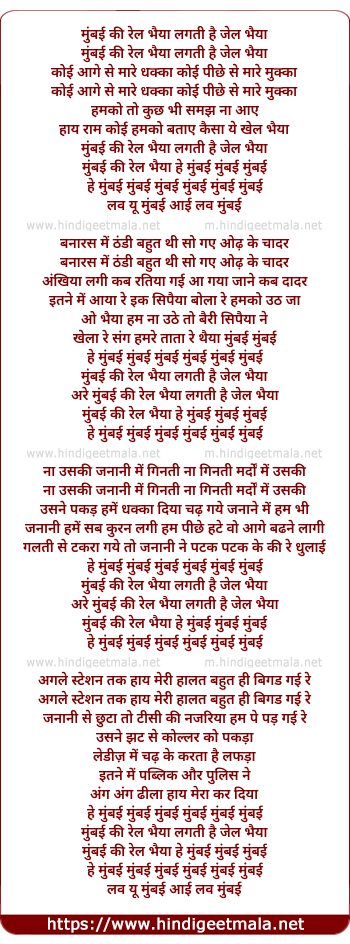 मुंबई की रेल भैया लगती है जेल भैया
मुंबई की रेल भैया लगती है जेल भैया
कोई आगे से मारे धक्का कोई पीछे से मारे मुक्का
कोई आगे से मारे धक्का कोई पीछे से मारे मुक्का
हमको तो कुछ भी समझ ना आए
हाय राम कोई हमको बताए कैसा ये खेल भैया
मुंबई की रेल भैया लगती है जेल भैया
मुंबई की रेल भैया हे मुंबई मुंबई मुंबई
हे मुंबई मुंबई मुंबई मुंबई मुंबई मुंबई
लव यू मुंबई आई लव मुंबई
www.hindigeetmala.net m.hindigeetmala.net
बनारस में ठंडी बहुत थी सो गए ओढ़ के चादर
बनारस में ठंडी बहुत थी सो गए ओढ़ के चादर
अंखिया लगी कब रतिया गई आ गया जाने कब दादर
इतने में आया रे इक सिपैया बोला रे हमको उठ जा
ओ भैया हम ना उठे तो बैरी सिपैया ने
खेला रे संग हमरे ताता रे थैया मुंबई मुंबई
हे मुंबई मुंबई मुंबई मुंबई मुंबई मुंबई
मुंबई की रेल भैया लगती है जेल भैया
अरे मुंबई की रेल भैया लगती है जेल भैया
मुंबई की रेल भैया हे मुंबई मुंबई मुंबई
हे मुंबई मुंबई मुंबई मुंबई मुंबई मुंबई
www.hindigeetmala.net m.hindigeetmala.net
ना उसकी जनानी में गिनती ना गिनती मर्दों में उसकी
ना उसकी जनानी में गिनती ना गिनती मर्दों में उसकी
उसने पकड़ हमें धक्का दिया चढ़ गये जनाने में हम भी
जनानी हमें सब कुरन लगी हम पीछे हटे वो आगे बढने लागी
गलती से टकरा गये तो जनानी ने पटक पटक के की रे धुलाई
हे मुंबई मुंबई मुंबई मुंबई मुंबई मुंबई
मुंबई की रेल भैया लगती है जेल भैया
अरे मुंबई की रेल भैया लगती है जेल भैया
मुंबई की रेल भैया हे मुंबई मुंबई मुंबई
हे मुंबई मुंबई मुंबई मुंबई मुंबई मुंबई
www.hindigeetmala.net m.hindigeetmala.net
अगले स्टेशन तक हाय मेरी हालत बहुत ही बिगड गई रे
अगले स्टेशन तक हाय मेरी हालत बहुत ही बिगड गई रे
जनानी से छुटा तो टीसी की नजरिया हम पे पड़ गई रे
उसने झट से कोल्लर को पकड़ा
लेडीज़ में चढ़ के करता है लफड़ा
इतने में पब्लिक और पुलिस ने
अंग अंग ढीला हाय मेरा कर दिया
हे मुंबई मुंबई मुंबई मुंबई मुंबई मुंबई
मुंबई की रेल भैया लगती है जेल भैया
मुंबई की रेल भैया हे मुंबई मुंबई मुंबई
हे मुंबई मुंबई मुंबई मुंबई मुंबई मुंबई
लव यू मुंबई आई लव मुंबई
https://www.hindigeetmala.net